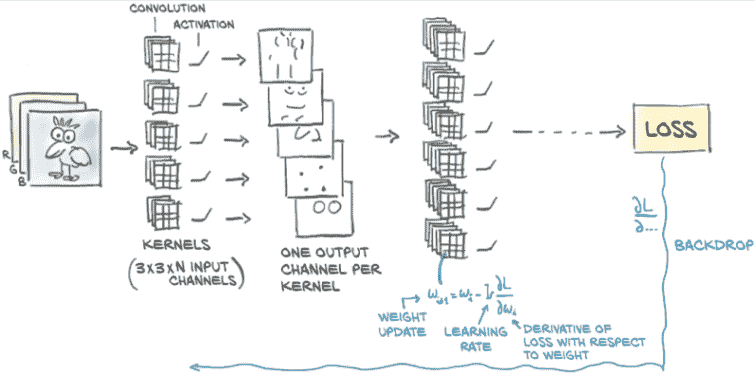 CONVOLUTION
ACTIVATION
R
G
B
KERNELS
(3X3XN INPUT
CHANNELS)
ONE OUTPUT
CHANNEL PER
KERNEL
LOSS
∂L
∂...
BACKDROP
WEIGHT
UPDATE
LEARNING
RATE
∂L
∂ωi
DERIVATIVE OF
LOSS WITH RESPECT
TO WEIGHT